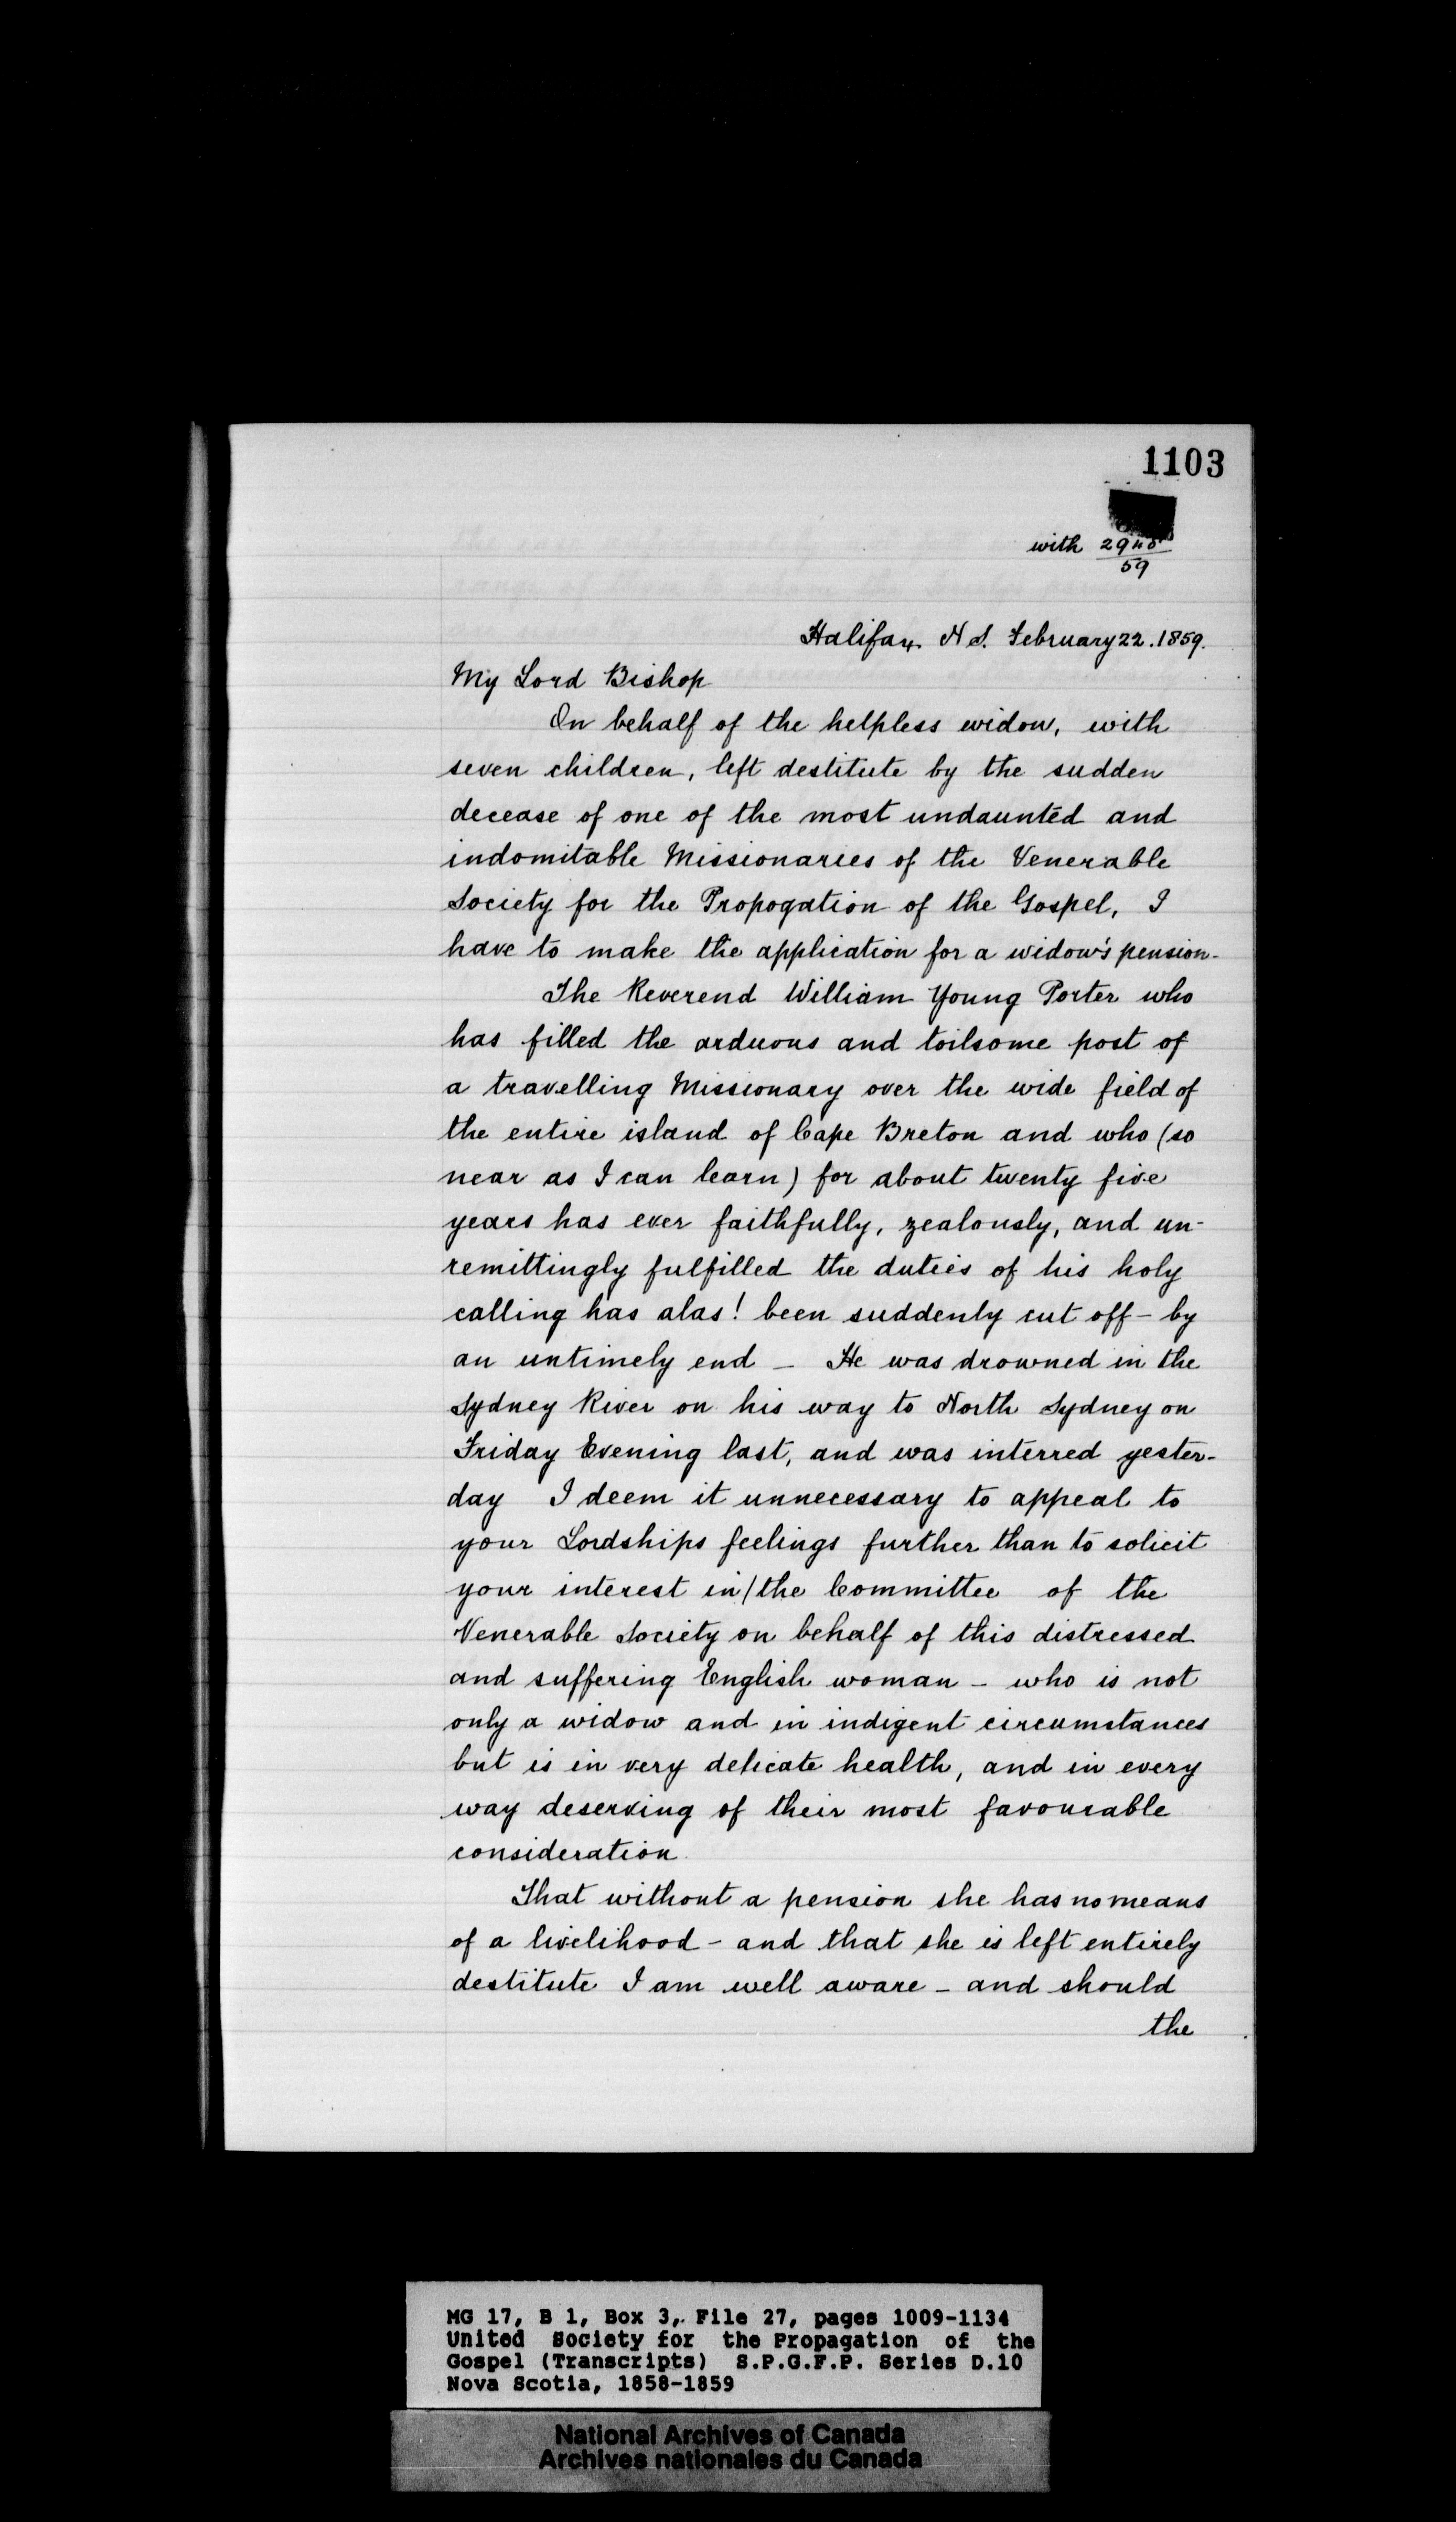 1103
with 2948
59
Halifax. N S. February 22. 1859.
My Lord Bishop
On behalf of the helpless widow, with
seven children, left destitute by the sudden
decease of one of the most undaunted and
indomitable Missionaries of the Venerable
Society for the Propogation of the Gospel, I
have to make the application for a widow's pension.
The Reverend William Young Porter who
has filled the arduous and toilsome post of
a travelling Missionary over the wide field of
the entire island of Cape Breton and who (so
near as I can learn) for about twenty five
years has ever faithfully, zealously, and un-
remittingly fulfilled the duties of his holy
calling has alas! been suddenly cut off - by
an untimely end - He was drowned in the
Sydney River on his way to North Sydney on
Friday Evening last, and was interred yester-
day I deem it unnecessary to appeal to
your Lordships feelings further than to solicit
your interest in/the Committee of the
Venerable Society on behalf of this distressed
and suffering English woman - who is not
only a widow and in indigent circumstances
but is in very delicate health, and in every
way deserving of their most favourable
consideration.
That without a pension she has no means
of a livelihood - and that she is left entirely
destitute I am well aware - and should
the
MG 17, B 1, Box 3, File 27, pages 1009-1134
United Society for the Propagation of the
Gospel (Transcripts) S.P.G.F.P. Series D.10
Nova Scotia, 1858-1859
National Archives of Canada
Archives nationales du Canada